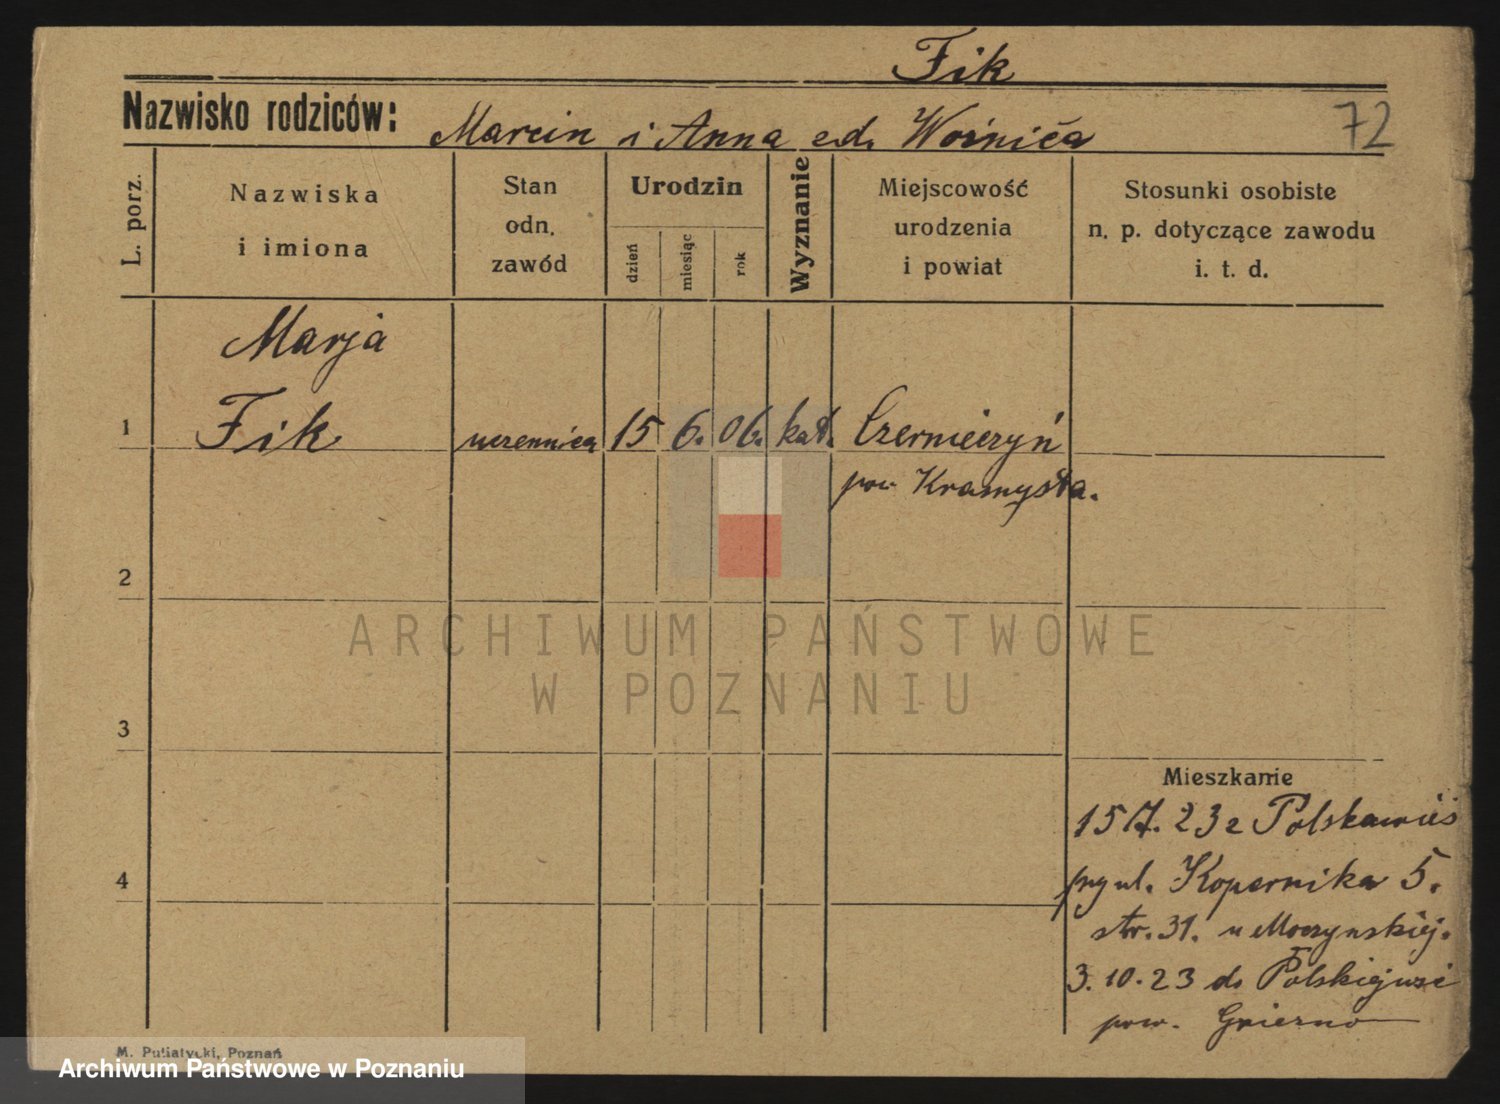 Fik
Nazwisko rodziców: Marcin i Anna z d. Woźnica
72
L. porz.
Nazwiska
i imiona
Stan
odn.
zawód
Urodzin
dzień
miesiąc
rok
Wyznanie
Miejscowość
urodzenia
i powiat
Stosunki osobiste
n. p. dotyczące zawodu
i. t. d.
Marja
1 Fik uczennica 15 6. 06. kat. Czernieczyń
pow Kramysta.
2
3
4
Mieszkanie
15 23 z Polskawieś
przy ul. Kopernika 5.
str. 31. u Moczynskiej.
3.10.23 do Polskiejwsi
pow. Gniezno
M. Putiatycki, Poznań
ARCHIWUM PAŃSTWOWE
W POZNANIU
Archiwum Państwowe w Poznaniu